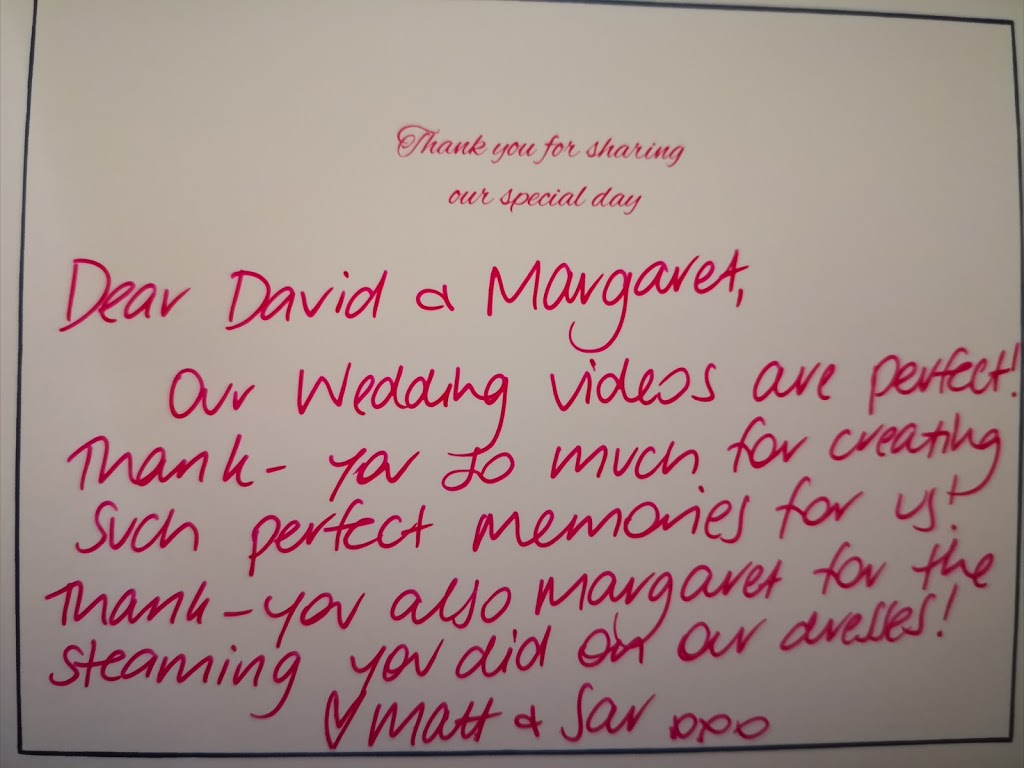 Thank you for sharing
our special day
Dear David & Margaret,
Our Wedding videos are perfect!
Thank-you so much for creating
such perfect memories for us!
Thank-you also Margaret for the
steaming you did on our dresses!
♡ Matt & Sar xoxo